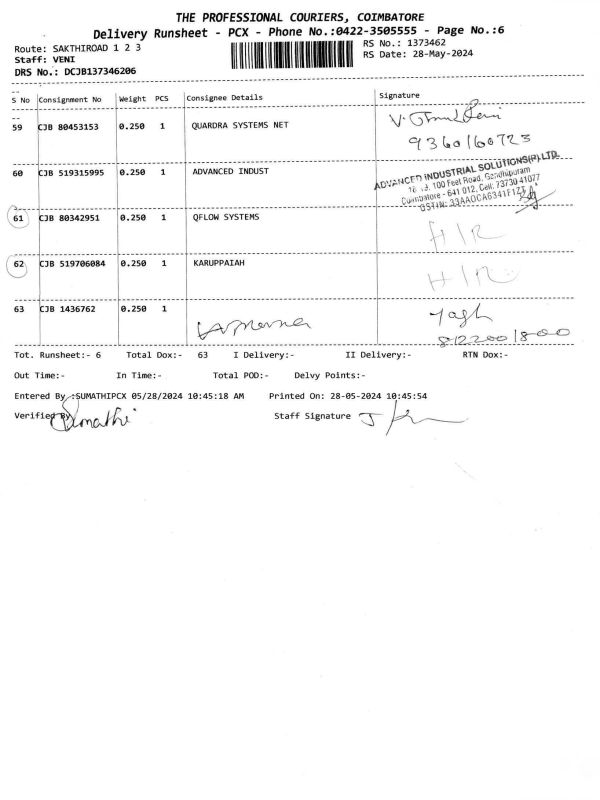 THE PROFESSIONAL COURIERS, COIMBATORE
Delivery Runsheet - PCX - Phone No.:0422-3505555 - Page No.:6
Route: SAKTHIROAD 1 2 3
RS No.: 1373462
Staff: VENI
RS Date: 28-May-2024
DRS No.: DCJB137346206
S No Consignment No Weight PCS Consignee Details Signature
59 CJB 80453153 0.250 1 QUARDRA SYSTEMS NET
9360160723
60 CJB 519315995 0.250 1 ADVANCED INDUST
ADVANCED INDUSTRIAL SOLUTIONS(P) LTD.
100 Feet Road, Gandhipuram
Coimbatore - 641 012, Cell: 73730 41027
61 CJB 80342951 0.250 1 QFLOW SYSTEMS
H I R
62 CJB 519706084 0.250 1 KARUPPAIAH
H I R
63 CJB 1436762 0.250 1
Tot. Runsheet:- 6 Total Dox:- 63 I Delivery:- II Delivery:- RTN Dox:-
Out Time:- In Time:- Total POD:- Delvy Points:-
Entered By :SUMATHIPCX 05/28/2024 10:45:18 AM Printed On: 28-05-2024 10:45:54
Verified By Sumathi Staff Signature